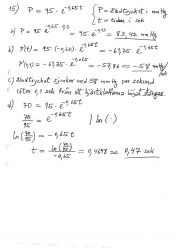 15) P = 95 · e^-0,65t { P = Blodtrycket i mm Hg
t = tiden i sek
a) P = 95 · e^-0,65·0,2 = 95 · e^-0,13 = 83,42 mmHg
b) P'(t) = 95 · (-0,65) · e^-0,65t = -61,75 · e^-0,65t
P'(0,1) = -61,75 · e^-0,065 = -57,86 ≈ -58 mmHg
c) Blodtrycket sjunker med 58 mmHg per sekund
efter 0,1 sek från att hjärtklaffarna stängas.
d) 70 = 95 · e^-0,65t
70/95 = e^-0,65t | ln( · )
ln(70/95) = -0,65t
t = ln(70/95) / -0,65 = 0,4698 ≈ 0,47 sek